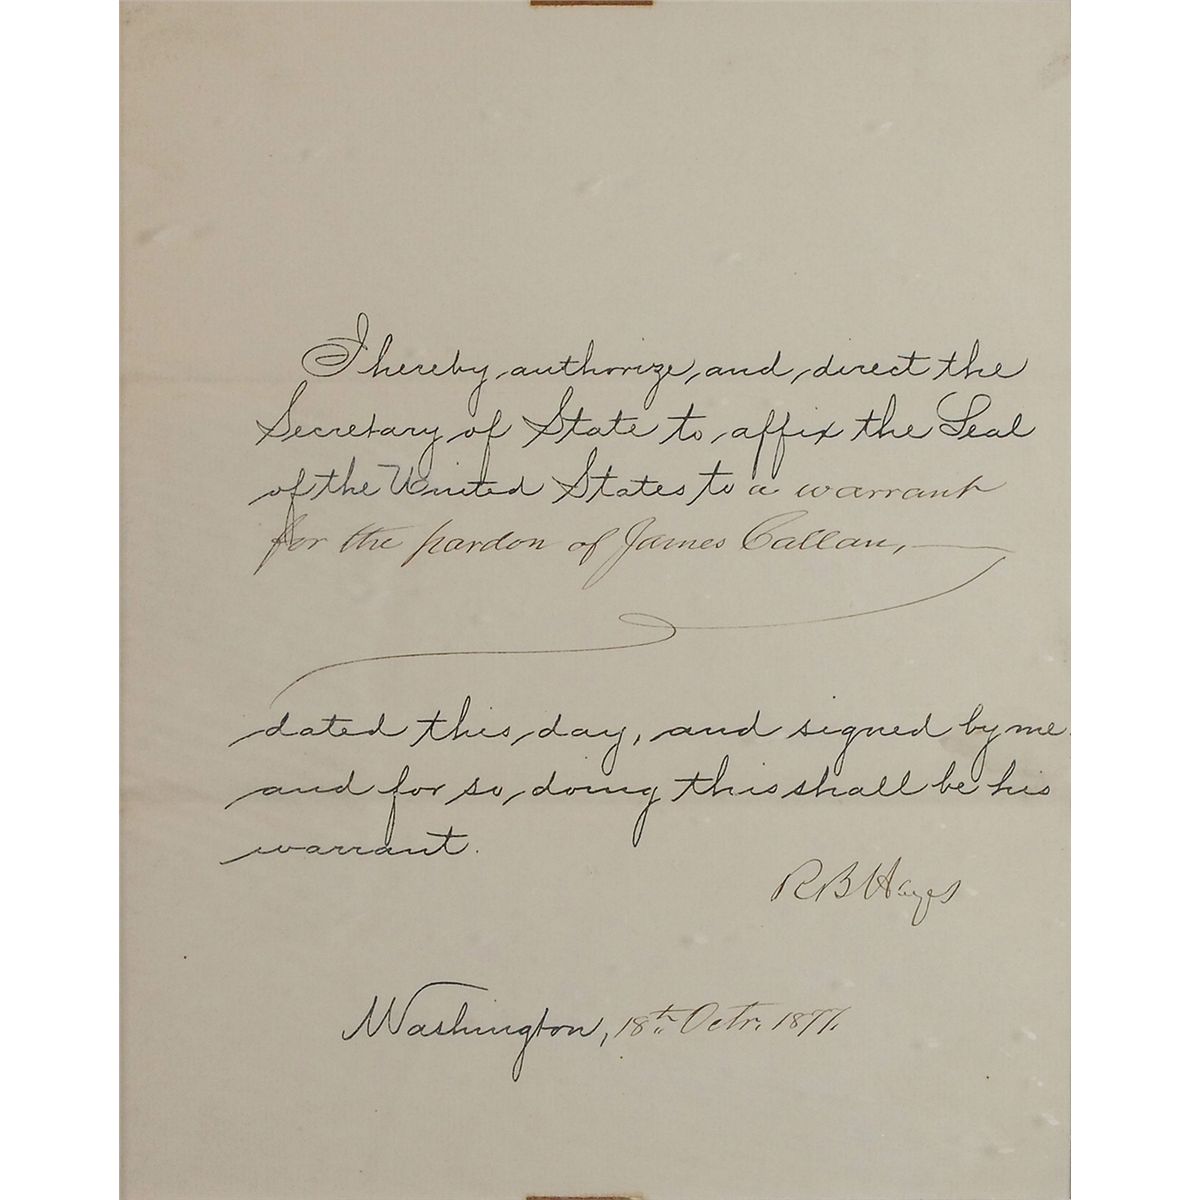 I hereby authorize and direct the
Secretary of State to affix the Seal
of the United States to a warrant
for the pardon of James Callan,
dated this day, and signed by me
and for so doing this shall be his
warrant.
R B Hayes
Washington, 18th Octr. 1877.